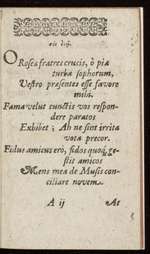 O Roseæ fratres crucis, ò pia
turba sophorum,
Vestro præsentes esse favore
mihi.
Fama velut cunctis vos respon-
dere paratos
Exhibet; Ah ne sint irrita
vota precor.
Fidus amicus ero, fidos quoq;
amicos
Mens mea de Musis con-
ciliare novem.
A ij
At